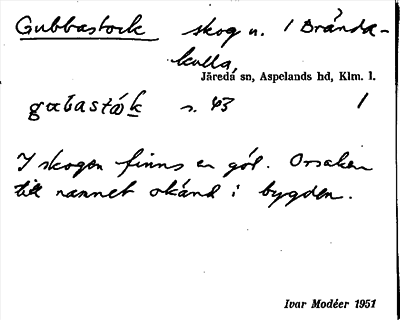 Gubbastock skog u. / Brända-
kulla,
Järeda sn, Aspelands hd, Klm. l.
gubaståk s. 43 1
I skogen finns en göl. Orsaken
till namnet okänd i bygden.
Ivar Modéer 1951